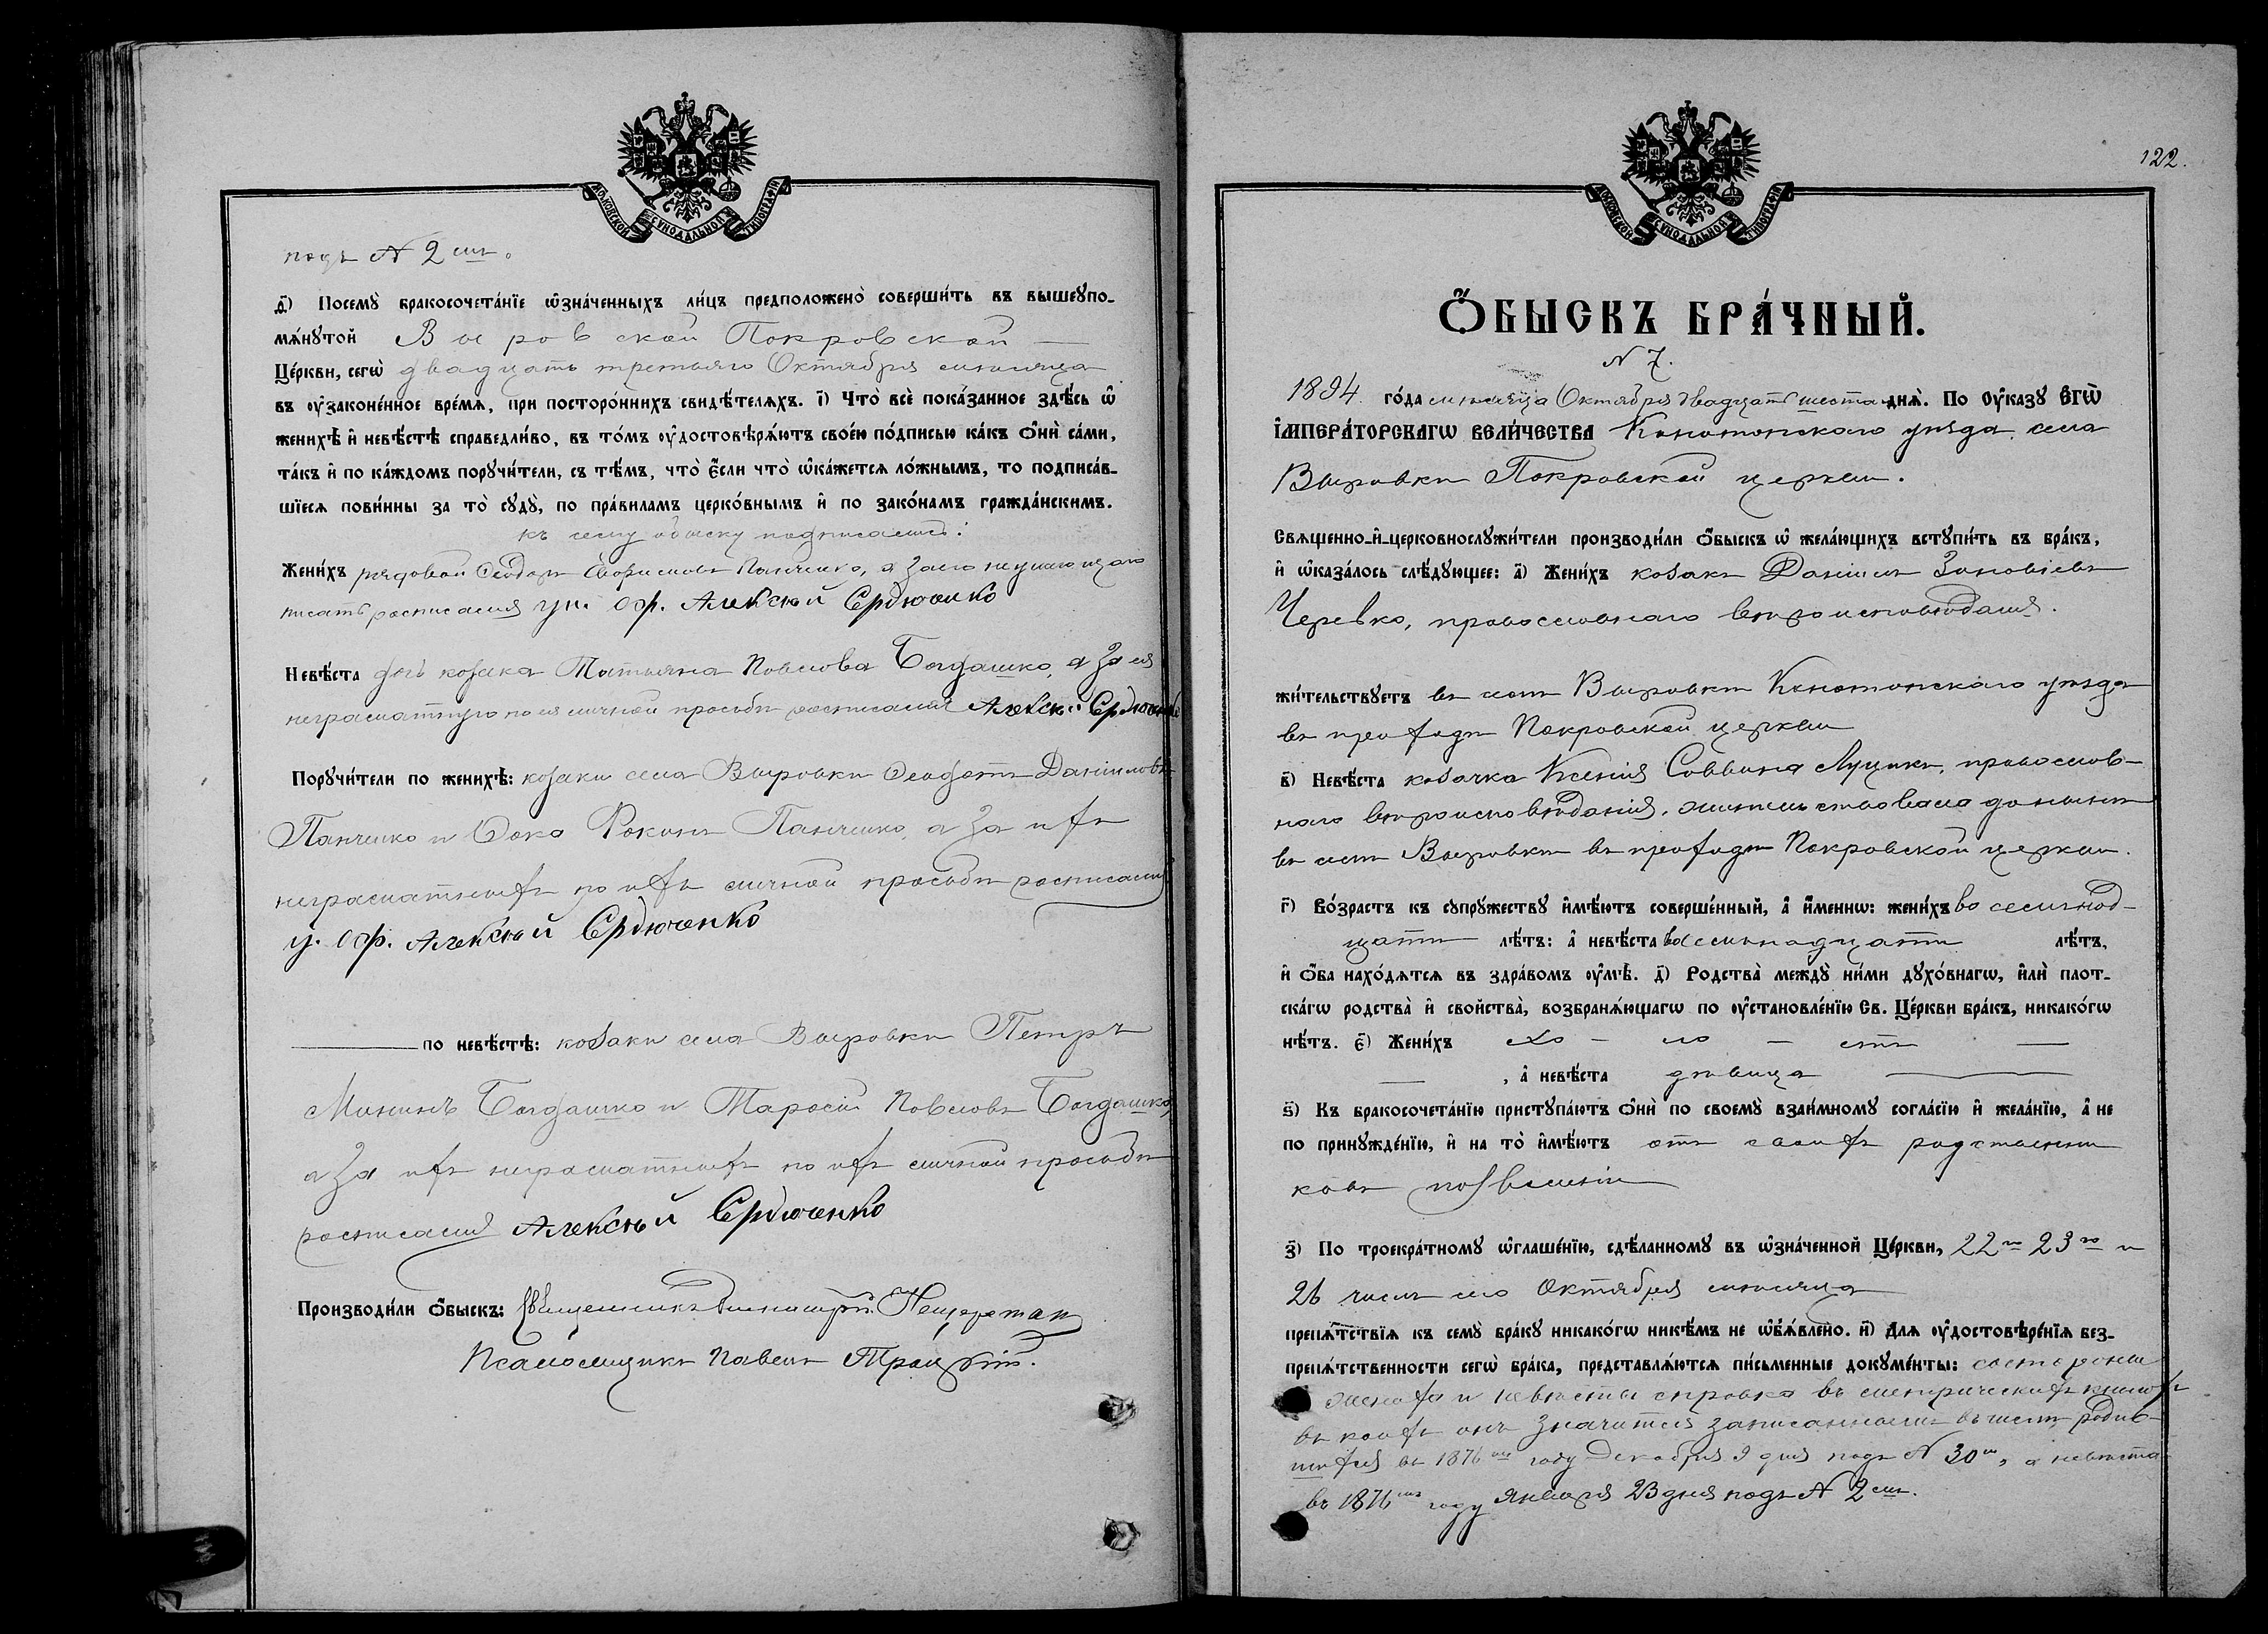 МОСКОВСКОЙ СѴНОДАЛЬНОЙ ТИПОГРАФІИ
подъ № 2мъ.
д҃) Посемꙋ̀ бракосочета́нїе ѡ҆зна́ченныхъ ли́цъ предположено̀ соверши́ть въ вышеꙋпо-
мѧ́нꙋтой Выровской Покровской —
Це́ркви, сегѡ̀ двадцать третьяго Октября мѣсяца
въ ᲂу҆законе́нное вре́мѧ, при посторо́ннихъ свидѣ́телѧхъ. і҃) Что̀ всѐ пока́занное здѣ́сь ѡ҆
женихѣ̀ и҆ невѣ́стѣ справедли́во, въ то́мъ ᲂу҆достовѣрѧ́ютъ свое́ю по́дписью ка́къ ѻ҆нѝ са́ми,
та́къ и҆ по ка́ждомъ порꙋчи́тели, съ тѣ́мъ, что̀ є҆́сли что̀ ѡ҆ка́жетсѧ ло́жнымъ, то подписа́в-
шїесѧ пови́нны за то̀ сꙋдꙋ̀, по пра́виламъ церко́внымъ и҆ по зако́намъ гражда́нскимъ.
къ сему обыску подписались:
Жени́хъ рядовой Ѳеодоръ Панченко, а за его неумѣющаго
писать росписался ун. оф. Алексѣй Сердюченко
Невѣ́ста дочь козака Татьяна Павлова Богдашко, а за ея
неграматную по ея личной просьбѣ росписался Алексѣй Сердюченко
Порꙋчи́тели по женихѣ̀: козаки села Выровки Ѳеодотъ Даниловъ
Панченко и Панченко, а за ихъ
неграматныхъ по ихъ личной просьбѣ росписался
у. оф. Алексѣй Сердюченко
по невѣ́стѣ: козаки села Выровки Петръ
Мининъ Богдашко и Тарасій Павловъ Богдашко,
а за ихъ неграматныхъ по ихъ личной просьбѣ
росписался Алексѣй Сердюченко
Производи́ли ѻ҆́быскъ: Священникъ
Псаломщикъ Павелъ
122.
МОСКОВСКОЙ СѴНОДАЛЬНОЙ ТИПОГРАФІИ
Ѻ҆́БЫСКЪ БРА́ЧНЫЙ.
№ 7.
1894 го́да мѣсяца Октября двадцать шестаго днѧ̀. По Оу҆казꙋ Є҆ГѠ̀
І҆МПЕРА́ТОРСКАГѠ ВЕЛИ́ЧЕСТВА Конотопскаго уѣзда, села
Выровки Покровской церкви.
Свѧщенно-и҆-церковнослꙋжи́тели производи́ли ѻ҆́быскъ ѡ҆ жела́ющихъ встꙋпи́ть въ бра́къ,
и҆ ѡ҆каза́лось слѣ́дꙋющее: а҃) Жени́хъ козакъ Даніилъ Зиновіевъ
Черевко, православнаго вѣроисповѣданія.
жи́тельствꙋетъ въ селѣ Выровкѣ Конотопскаго уѣзда
въ приходѣ Покровской церкви
в҃) Невѣ́ста козачка Ксенія Саввина Луцикъ, православ-
наго вѣроисповѣданія, жительствовала до нынѣ
въ селѣ Выровкѣ въ приходѣ Покровской церкви.
г҃) Во́зрастъ къ сꙋпрꙋжествꙋ и҆мѣ́ютъ соверше́нный, а҆ и҆́меннѡ: жени́хъ восемнад-
цати лѣ́тъ: а҆ невѣ́ста восемьнадцати лѣ́тъ,
и҆ ѻ҆́ба нахо́дѧтсѧ въ здра́вомъ ᲂу҆мѣ̀. д҃) Родства̀ междꙋ̀ ни́ми дꙋхо́внагѡ, и҆лѝ плот-
ска́гѡ родства̀ и҆ свойства̀, возбранѧ́ющагѡ по ᲂу҆становле́нїю Св. Це́ркви бра́къ, никако́гѡ
нѣ́тъ. є҃) Жени́хъ хо — ло — стъ —
— , а҆ невѣ́ста дѣвица —
ѕ҃) Къ бракосочета́нїю пристꙋпа́ютъ ѻ҆нѝ по своемꙋ̀ взаи́мномꙋ согла́сїю и҆ жела́нїю, а҆ не
по принꙋжде́нїю, и҆ на то̀ и҆мѣ́ютъ отъ своихъ родственни
ковъ позволеніе
з҃) По троекра́тномꙋ ѡ҆глаше́нїю, сдѣ́ланномꙋ въ ѡ҆зна́ченной Це́ркви, 22го 23го и
26 числъ сего Октября мѣсяца
препѧ́тствїѧ къ семꙋ̀ бра́кꙋ никако́гѡ никѣ́мъ не ѡ҆б̾ѧ́влено. и҃) Длѧ ᲂу҆достовѣре́нїѧ без-
препѧ́тственности сегѡ̀ бра́ка, представлѧ́ютсѧ пи́сьменные докꙋме́нты: со стороны
жениха и невѣсты справка въ метрическихъ книгахъ
въ коихъ онъ значится записаннымъ въ числѣ родив-
шихся въ 1876мъ году Декабря 9 дня подъ № 30м, а невѣста
въ 1876мъ году Января 23 дня подъ № 2мъ.